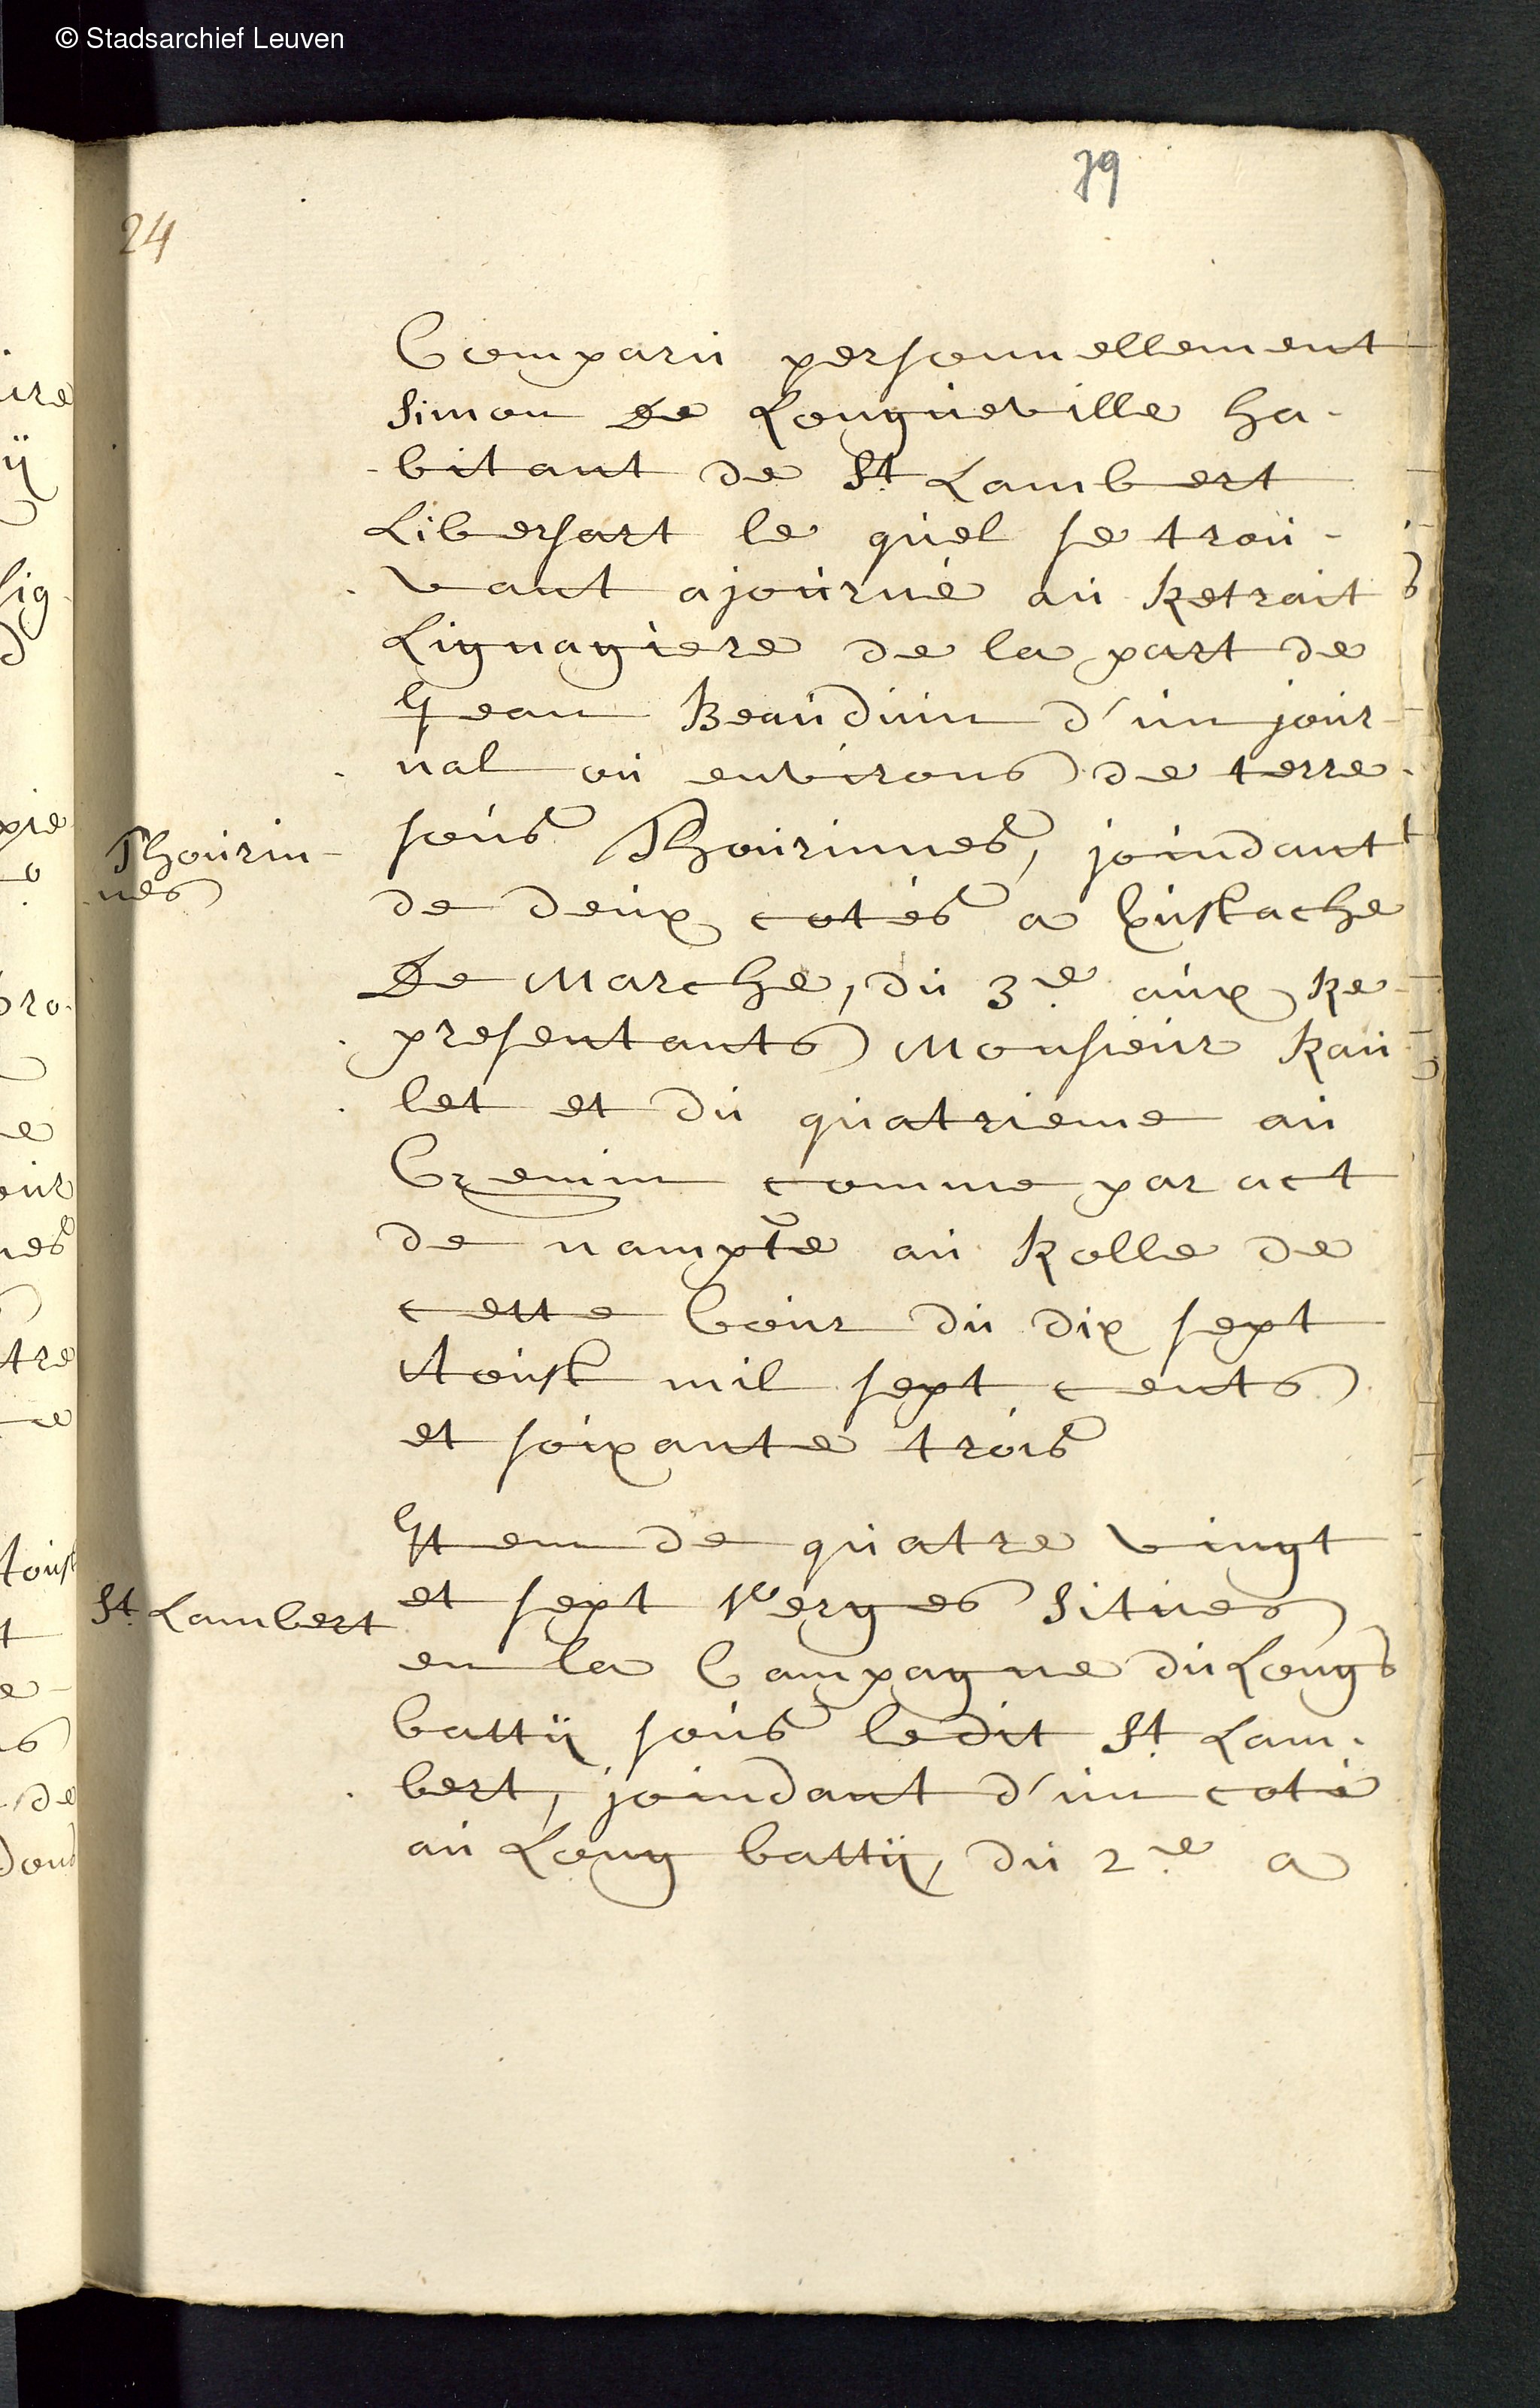 © Stadsarchief Leuven
79
24
Comparu personnellement
Simon De Longueville ha-
-bitant de St Lambert
Libersart le quel se trou-
-vant ajourné au Retrait
Lignagiere de la part de
Jean Beauduin d'un jour-
-nal ou environs de terre
sous Thourinnes, joindant
Thourin-
-nes
de deux cotés a Eustache
De Marche, du 3e aux Re-
-presentants Monsieur Rau-
-let et du quatrieme au
Cremin comme par act
de nampte au Rolle de
cette Cour du dix sept
Aoust mil sept cents
et soixante trois
Item de quatre vingt
et sept Verges Situes
St Lambert
en la Campagne du Longs
battij sous ledit St Lam-
-bert, joindant d'un coté
au Long battij, du 2e a